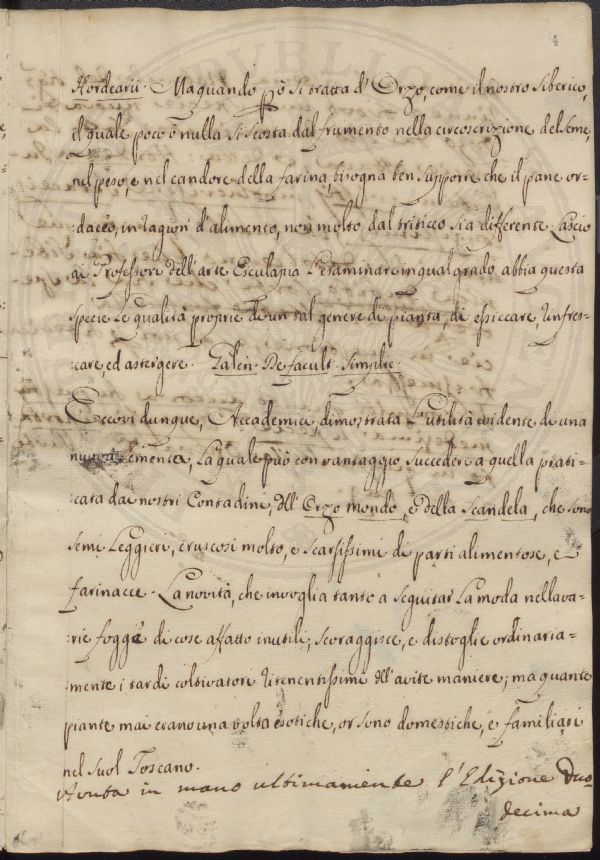 4
Hordearii. Ma quando però si tratta d'Orzo, come il nostro Siberico,
il quale poco ò nulla si scosta dal frumento nella circoscrizione del seme,
nel peso, e nel candore della farina, bisogna ben supporre che il pane or-
:dacèo, in ragion d'alimento, non molto dal triticeo sia differente. Lascio
ai Professori dell'arte Esculapia l'esaminare in qual grado abbia questa
specie le qualità proprie di un tal genere di pianta, di essiccare, rinfres-
:care, ed astergere. Galen. De facult. Simplic.
Eccovi dunque, Accademici, dimostrata l'utilità evidente di una
nuova sementa, la quale può con vantaggio succedere a quella prati-
:cata dai nostri Contadini, dell'Orzo mondo, e della Scandela, che sono
semi leggieri, cruscosi molto, e scarsissimi di parti alimentose, e
farinacee. La novità, che invoglia tanto a seguitar la moda nella va-
:rie foggie di cose affatto inutili, scoraggisce, e distoglie ordinaria-
:mente i tardi coltivatori ritenentissimi dell'avite maniere; ma quante
piante mai erano una volta esotiche, or sono domestiche, e familiari
nel suol Toscano.
Avuta in mano ultimamente l'Edizione Duo-
decima